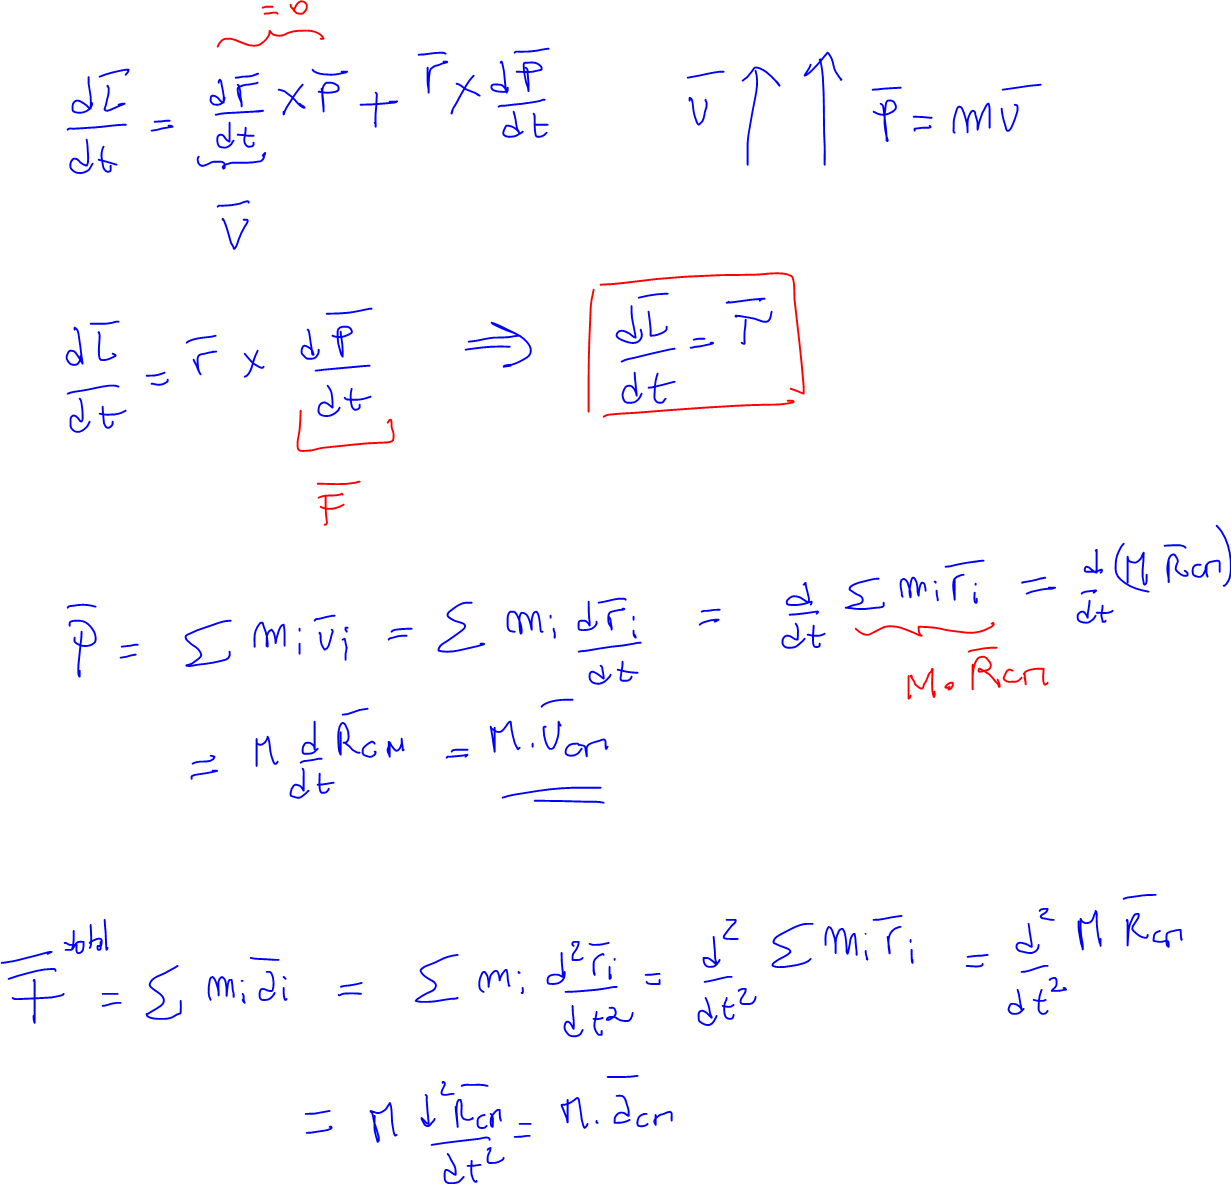 = 0
dL̄/dt = dr̄/dt × p̄ + r̄ × dp̄/dt    v̄    p̄ = mv̄
v̄
dL̄/dt = r̄ × dp̄/dt ⇒ dL̄/dt = τ̄
F̄
p̄ = Σ mᵢv̄ᵢ = Σ mᵢ dr̄ᵢ/dt = d/dt Σ mᵢr̄ᵢ = d/dt (M R̄cm)
M . R̄cm
= M d/dt R̄CM = M . v̄cm
F̄ total = Σ mᵢāᵢ = Σ mᵢ d²r̄ᵢ/dt² = d²/dt² Σ mᵢr̄ᵢ = d²/dt² M R̄cm
= M d²R̄cm/dt² = M . ācm